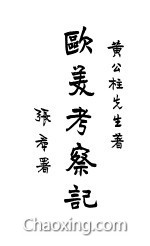 黃公柱先生著
歐美考察記
張羣署
Chaoxing.com